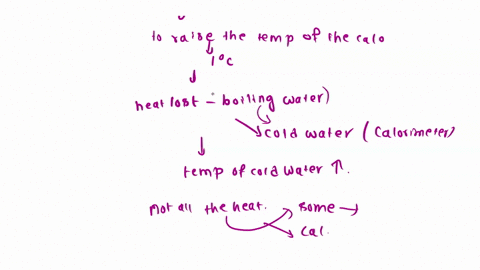 to raise the temp of the calo
↓ 1°C
↓
heat lost - boiling water)
cold water (calorimeter)
↓
temp of cold water ↑.
Not all the heat. some →
cal.